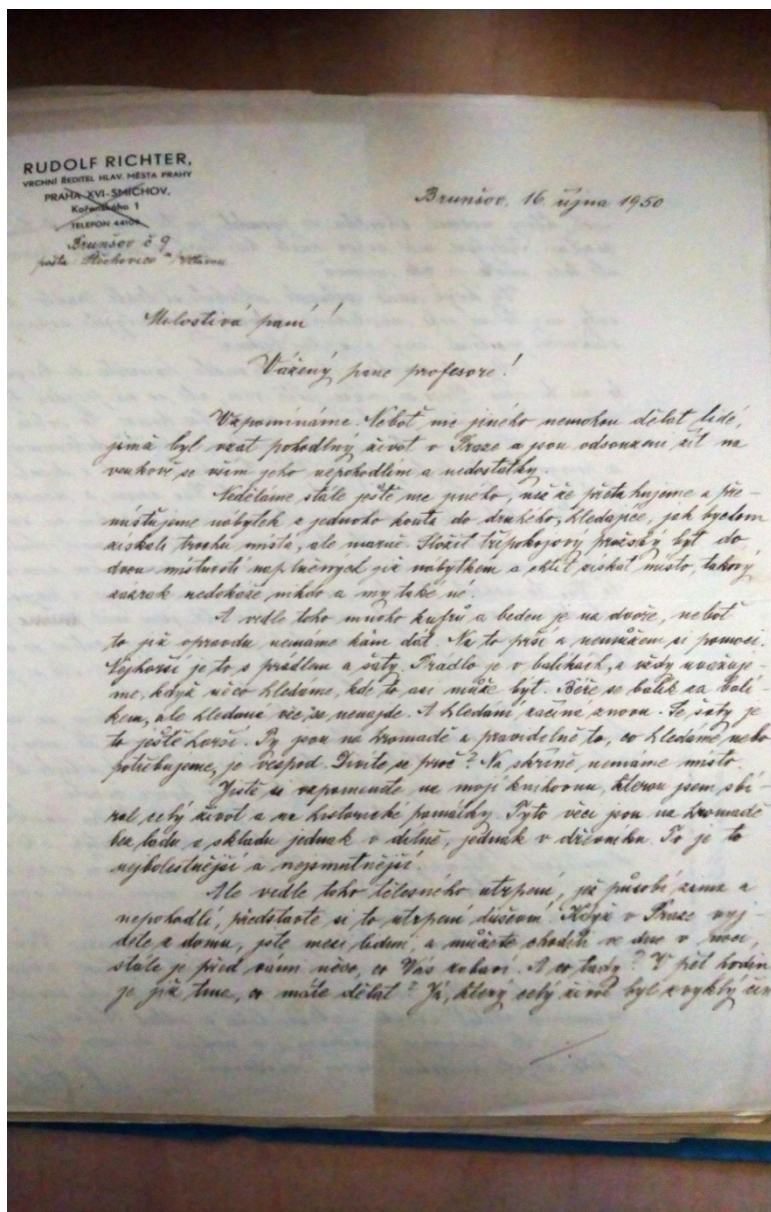 RUDOLF RICHTER,
VRCHNÍ ŘEDITEL HLAV. MĚSTA PRAHY
PRAHA XVI-SMÍCHOV,
Kořenského 1
TELEFON 44102
Brunšov č 9
pošta Štěchovice n/Vltavou
Brunšov, 16. října 1950
Milostivá paní!
Vážený pane profesore!
Vzpomínáme. Neboť nic jiného nemohou dělat lidé,
jimž byl vzat pohodlný život v Praze a jsou odsouzeni žít na
venkově se vším jeho nepohodlím a nedostatky.
Neděláme stále ještě nic jiného, než že přetahujeme a pře-
místujeme nábytek z jednoho kouta do druhého, hledajíce, jak bychom
získali trochu místa, ale marně. Složit třípokojový pražský byt do
dvou místností naplněných již nábytkem a chtít získat místo, takový
zázrak nedokáže nikdo a my také ne.
A vedle toho mnoho kufrů a beden je na dvoře, neboť
to již opravdu nemáme kam dát. Na to prší a nemůžem si pomoci.
Nejhorší je to s prádlem a šaty. Prádlo je v balíkách, a vždy uvažuje-
me, když něco hledáme, kde to asi může být. Béře se balík za balí-
kem, ale hledaná věc se nenajde. A hledání začíná znovu. Se šaty je
to ještě horší. Ty jsou na hromadě a pravidelně to, co hledáme nebo
potřebujeme, je vespod. Divíte se proč? Na skříně nemáme místo.
Jistě se vzpomenete na moji knihovnu, kterou jsem sbí-
ral celý život a na historické památky. Tyto věci jsou na hromadě
bez ladu a skladu jednak v dílně, jednak v dřevníku. To je to
nejbolestnější a nejsmutnější.
Ale vedle toho tělesného utrpení, jež působí zima a
nepohodlí, představte si to utrpení duševní. Když v Praze vyj-
dete z domu, jste mezi lidmi, a můžete choditi ve dne v noci,
stále je před vámi něco, co Vás zabaví. A co tady? V pět hodin
je již tma, co máte dělat? Já, který celý život byl zvyklý